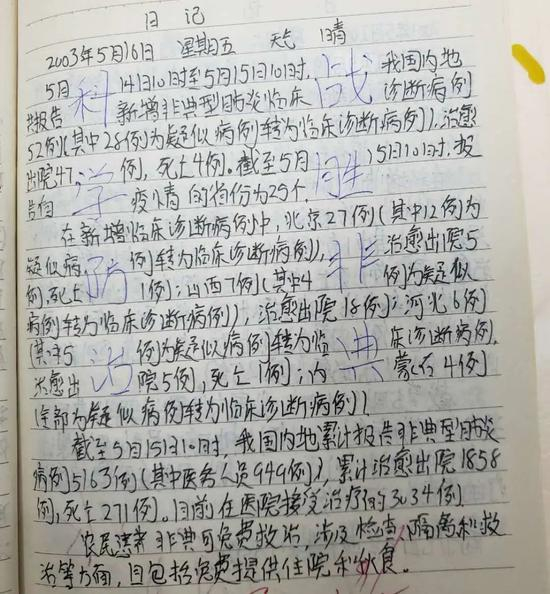 日记
2003年5月16日 星期五 天气 晴
5月14日10时至5月15日10时,我国内地
共报告新增非典型肺炎临床诊断病例
52例(其中28例为疑似病例转为临床诊断病例),治愈
出院47例,死亡4例。截至5月15日10时,报
告有疫情的省份为25个.
在新增临床诊断病例中,北京27例(其中12例为
疑似病例转为临床诊断病例),治愈出院5
例,死亡1例;山西7例(其中4例为疑似
病例转为临床诊断病例),治愈出院18例;河北6例
(其中5例为疑似病例转为临床诊断病例,
治愈出院5例,死亡1例;内蒙古4例
(全部为疑似病例转为临床诊断病例).
截至5月15日10时,我国内地累计报告非典型肺炎
病例5163例(其中医务人员949例),累计治愈出院1858
例,死亡271例。目前在医院接受治疗的3034例.
农民患者非典可免费救治,涉及检查、隔离和救
治等方面,且包括免费提供住院和伙食。
科学防治
战胜非典